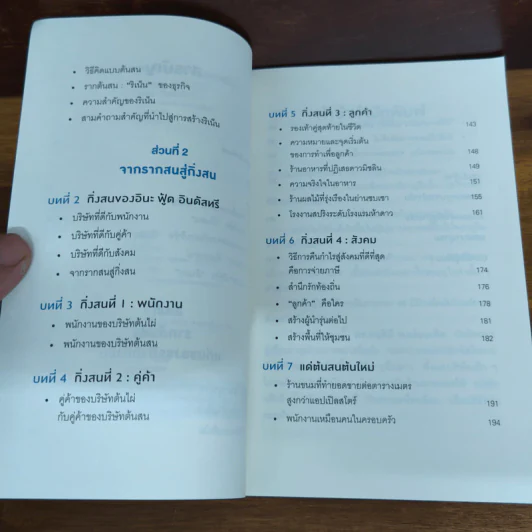 • วิธีคิดแบบต้นสน
• รากต้นสน : "ริเน็น" ของธุรกิจ
• ความสำคัญของริเน็น
• สามคำถามสำคัญที่นำไปสู่การสร้างริเน็น
ส่วนที่ 2
จากรากสนสู่กิ่งสน
บทที่ 2 กิ่งสนของอินะ ฟู้ด อินดัสทรี
• บริษัทที่ดีกับพนักงาน
• บริษัทที่ดีกับคู่ค้า
• บริษัทที่ดีกับสังคม
• จากรากสนสู่กิ่งสน
บทที่ 3 กิ่งสนที่ 1 : พนักงาน
• พนักงานของบริษัทต้นไผ่
• พนักงานของบริษัทต้นสน
บทที่ 4 กิ่งสนที่ 2 : คู่ค้า
• คู่ค้าของบริษัทต้นไผ่
กับคู่ค้าของบริษัทต้นสน
บทที่ 5 กิ่งสนที่ 3 : ลูกค้า
• รองเท้าคู่สุดท้ายในชีวิต 143
• ความหมายและจุดเริ่มต้น
ของการทำเพื่อลูกค้า 148
• ร้านอาหารที่ปฏิเสธดาวมิชลิน 149
• ความจริงใจในอาหาร 151
• ร้านผลไม้ที่รุ่งเรืองในย่านซบเซา 155
• โรงงานสปริงระดับโรงแรมห้าดาว 161
บทที่ 6 กิ่งสนที่ 4 : สังคม
• วิธีการคืนกำไรสู่สังคมที่ดีที่สุด
คือการจ่ายภาษี 174
• สำนึกรักท้องถิ่น 176
• "ลูกค้า" คือใคร 178
• สร้างผู้นำรุ่นต่อไป 181
• สร้างพื้นที่ให้ชุมชน 182
บทที่ 7 แด่ต้นสนต้นใหม่
• ร้านขนมที่ทำยอดขายต่อตารางเมตร
สูงกว่าแอปเปิลสโตร์ 191
• พนักงานเหมือนคนในครอบครัว 194